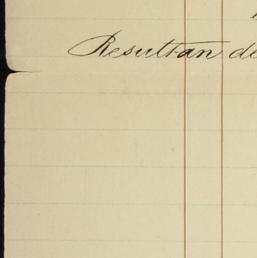 Resultan de